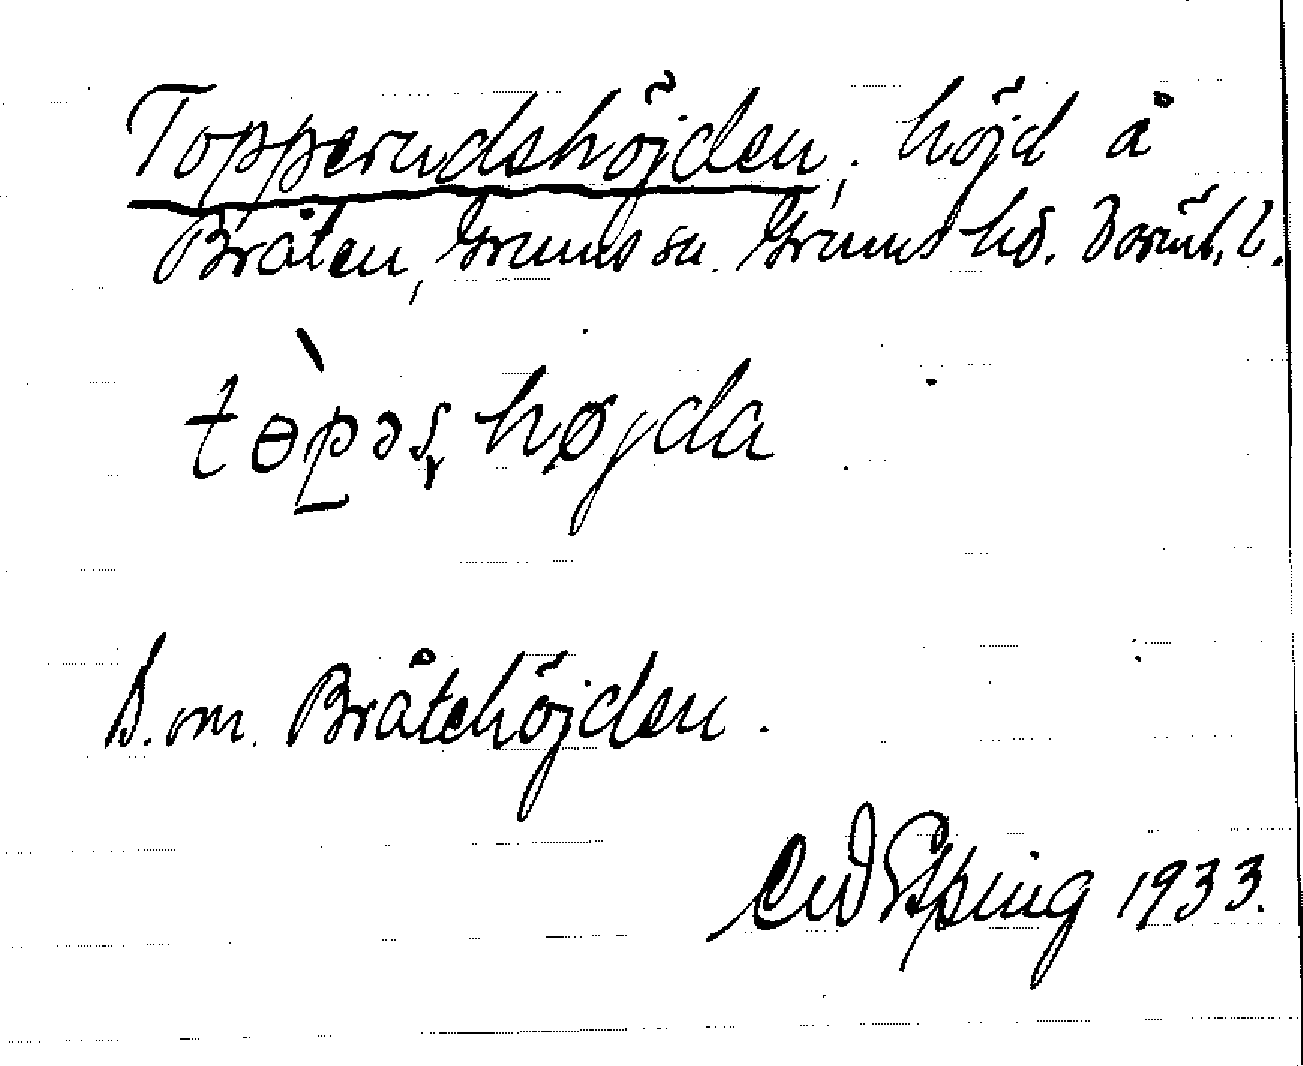 Topperudshöjden, höjd å
Bråten, Grums sn. Grums hd. Värml. l.
tɵ̀pəʂhøjda
S. om. Bråtehöjden.
Epping 1933.